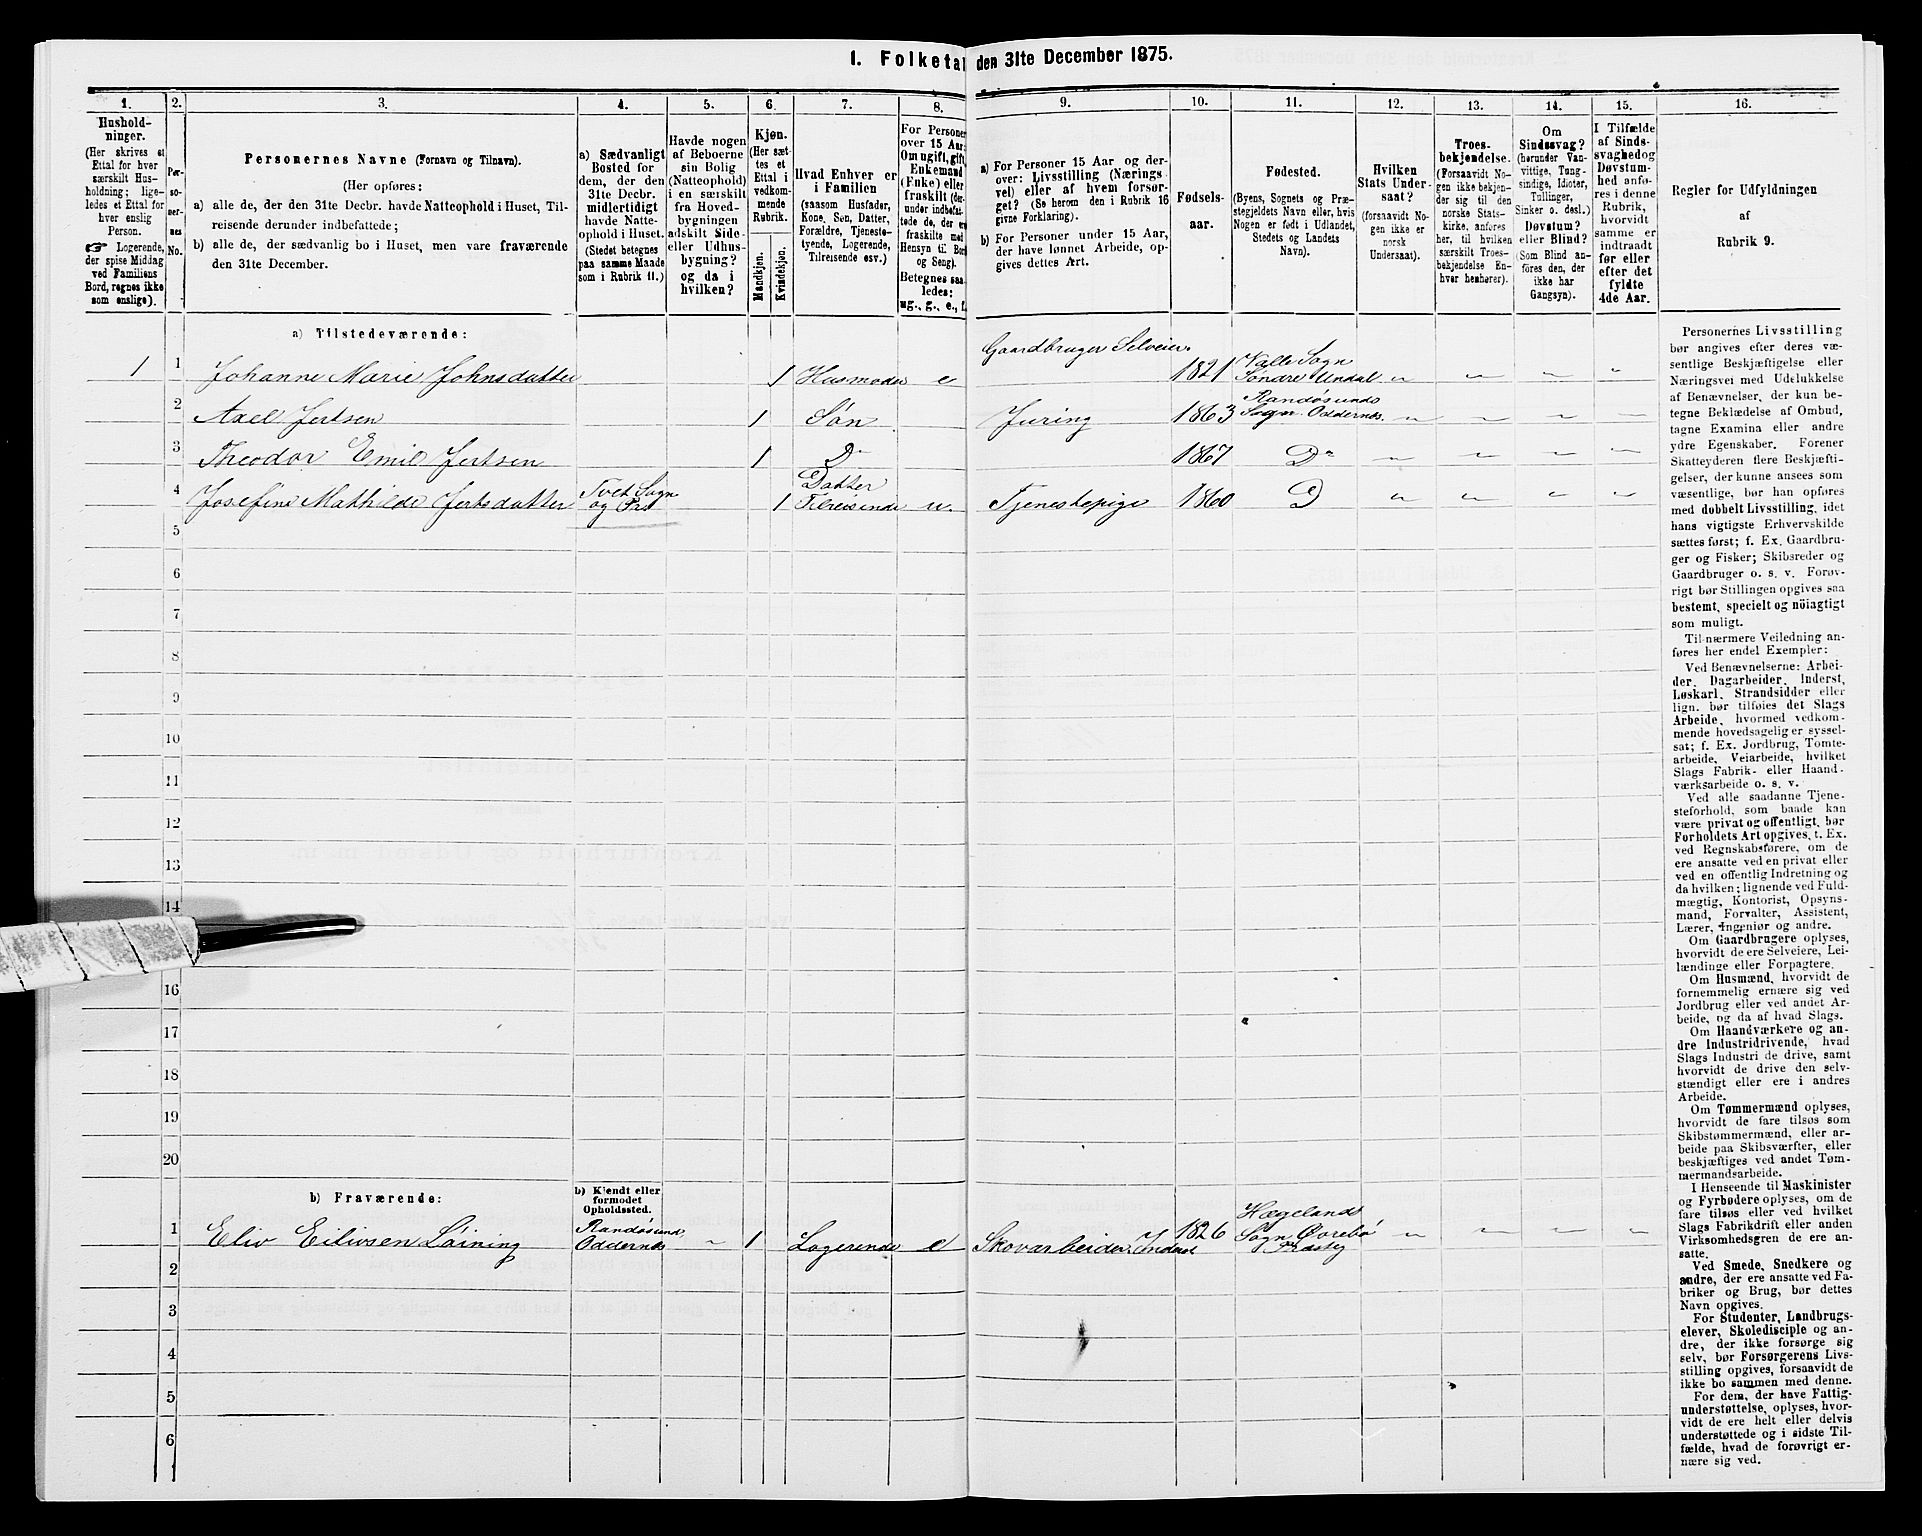 1. Folketal den 31te December 1875.
1.
Hushold-
ninger.
(Her skrives et
Ettal for hver
særskilt Hus-
holdning; lige-
ledes et Ettal for
hver enslig
Person.
☞ Logerende,
der spise Middag
ved Familiens
Bord, regnes ikke
som enslige).
2.
Per-
so-
ner-
nes
No.
3.
Personernes Navne (Fornavn og Tilnavn).
(Her opføres:
a) alle de, der den 31te Decbr. havde Natteophold i Huset, Til-
reisende derunder indbefattede;
b) alle de, der sædvanlig bo i Huset, men vare fraværende
den 31te December.
4.
a) Sædvanligt
Bosted for
dem, der den
31te Decbr.
midlertidigt
havde Natte-
ophold i Huset.
(Stedet betegnes
paa samme Maade
som i Rubrik 11.)
5.
Havde nogen
af Beboerne
sin Bolig
(Natteophold)
i en særskilt
fra Hoved-
bygningen
adskilt Side-
eller Udhus-
bygning?
og da i
hvilken?
6.
Kjøn.
(Her sæt-
tes et
Ettal i
vedkom-
mende
Rubrik.
Mandkjøn.
Kvindekjøn.
7.
Hvad Enhver er
i Familien
(saasom Husfader,
Kone, Søn, Datter,
Forældre, Tjeneste-
tyende, Logerende,
Tilreisende osv.)
8.
For Personer
over 15 Aar:
Om ugift, gift,
Enkemand
(Enke) eller
fraskilt (der-
under indbefat-
tede de, der ere
fraskilte med
Hensyn til Bord
og Seng).
Betegnes saa-
ledes:
ug., g., e., f.
9.
a) For Personer 15 Aar og der-
over: Livsstilling (Nærings
vei) eller af hvem forsør-
get? (Se herom den i Rubrik 16
givne Forklaring).
b) For Personer under 15 Aar,
der have lønnet Arbeide, op-
gives dettes Art.
10.
Fødsels-
aar.
11.
Fødested.
(Byens, Sognets og Præ-
stegjeldets Navn eller, hvis
Nogen er født i Udlandet,
Stedets og Landets
Navn).
12.
Hvilken
Stats Under-
saat?
(forsaavidt No-
gen ikke er
norsk
Undersaat).
13.
Troes-
bekjendelse.
(Forsaavidt No-
gen ikke bekjen-
der sig til den
norske Stats-
kirke, anføres
her, til hvilken
særskilt Troes-
bekjendelse En-
hver henhører).
14.
Om
Sindssvag?
(herunder Van-
vittige, Tung-
sindige, Idioter,
Tullinger,
Sinker o. desl.)
Døvstum?
eller Blind?
(Som Blind an-
føres den, der
ikke har
Gangsyn).
15.
I Tilfælde
af Sinds-
svaghed og
Døvstum-
hed anfø-
res i denne
Rubrik,
hvorvidt
samme er
indtraadt
før eller
efter det
fyldte
4de Aar.
16.
Regler for Udfyldningen
af
Rubrik 9.
a) Tilstedeværende:
1 1 Johanne Marie Johnsdatter 1 Husmoder e Gaardbruger Selveier. 1821 Valle Sogn Søndre Undal " " " "
2 Axel Jertsen 1 Søn Juring 1863 Randøsunds Sogn Oddernes.
3 Theodor Emil Jertsen 1 Do 1867 Do
4 Josefine Mathilde Jertsdatter Tvet Sogn og Prst 1 Datter Tilreisende u. Tjenestepige 1860 D
5
6
7
8
9
10
11
12
13
14
16
17
18
19
20
b) Fraværende:
b) Kjendt eller
formodet
Opholdssted.
1 Eliv Eilivsen Laining Randøsund Oddernes " 1 Logerende e Skovarbeider Inderst 1826 Hægelands Sogn Øvrebø Præstg
2
3
4
5
6
Personernes Livsstilling
bør angives efter deres væ-
sentlige Beskjæftigelse eller
Næringsvei med Udelukkelse
af Benævnelser, der kun be-
tegne Beklædelse af Ombud,
tagne Examina eller andre
ydre Egenskaber. Forener
Skatteyderen flere Beskjæfti-
gelser, der kunne ansees som
væsentlige, bør han opføres
med dobbelt Livsstilling, idet
hans vigtigste Erhvervskilde
sættes først; f. Ex. Gaardbru-
ger og Fisker; Skibsreder og
Gaardbruger o. s. v. Forøv-
rigt bør Stillingen opgives saa
bestemt, specielt og nöiagtigt
som muligt.
Til nærmere Veiledning an-
føres her endel Exempler:
Ved Benævnelserne: Arbei-
der, Dagarbeider, Inderst,
Løskarl, Strandsidder eller
lign. bør tilføies det Slags
Arbeide, hvormed vedkom-
mende hovedsagelig er syssel-
sat; f. Ex. Jordbrug, Tomte-
arbeide, Veiarbeide, hvilket
Slags Fabrik- eller Haand-
værksarbeide o. s. v.
Ved alle saadanne Tjene-
steforhold, som baade kan
være privat og offentligt, bør
Forholdets Art opgives, t. Ex.
ved Regnskabsførere, om de
ere ansatte ved en privat eller
ved en offentlig Indretning og
da hvilken; lignende ved Fuld-
mægtig, Kontorist, Opsyns-
mand, Forvalter, Assistent,
Lærer, Ingeniør og andre.
Om Gaardbrugere oplyses,
hvorvidt de ere Selveiere, Lei-
lændinge eller Forpagtere.
Om Husmænd, hvorvidt de
fornemmelig ernære sig ved
Jordbrug eller ved andet Ar-
beide, og da af hvad Slags.
Om Haandværkere og an-
dre Industridrivende, hvad
Slags Industri de drive, samt
hvorvidt de drive den selv-
stændigt eller ere i andres
Arbeide.
Om Tømmermænd oplyses,
hvorvidt de fare tilsøs som
Skibstømmermænd, eller ar-
beide paa Skibsværfter, eller
beskjæftiges ved andet Tøm-
mermandsarbeide.
I Henseende til Maskinister
og Fyrbødere oplyses, om de
fare tilsøs eller ved hvilket
Slags Fabrikdrift eller anden
Virksomhedsgren de ere an-
satte.
Ved Smede, Snedkere og
andre, der ere ansatte ved Fa-
briker og Brug, bør dettes
Navn opgives.
For Studenter, Landbrugs-
elever, Skoledisciple og an-
dre, der ikke forsørge sig
selv, bør Forsørgerens Livs-
stilling opgives, forsaavidt de
ikke bo sammen med denne.
For dem, der have Fattig-
understøttelse, oplyses, hvor-
vidt de ere helt eller delvis
understøttede og i sidste Til-
fælde, hvad de forøvrigt er-
nære sig ved.